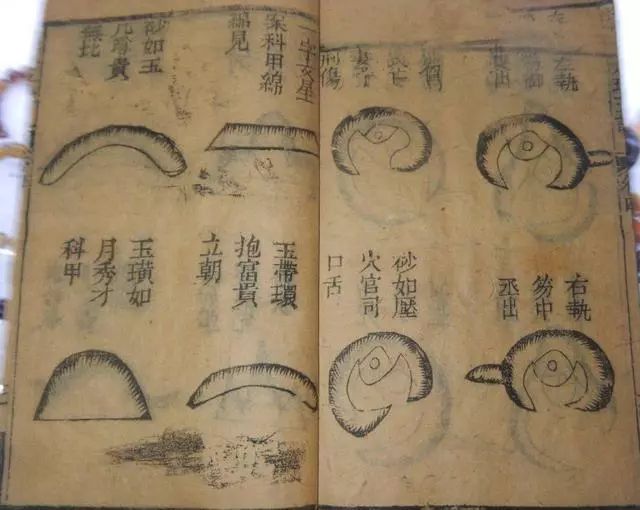 左執
笏御
出
刑傷
右執
笏中
丞出
砂如壓
穴官司
口舌
一字文星
案科甲綿
綿見
砂如玉
几尊貴
無比
玉帶環
抱富貴
立朝
玉璜如
月秀才
科甲